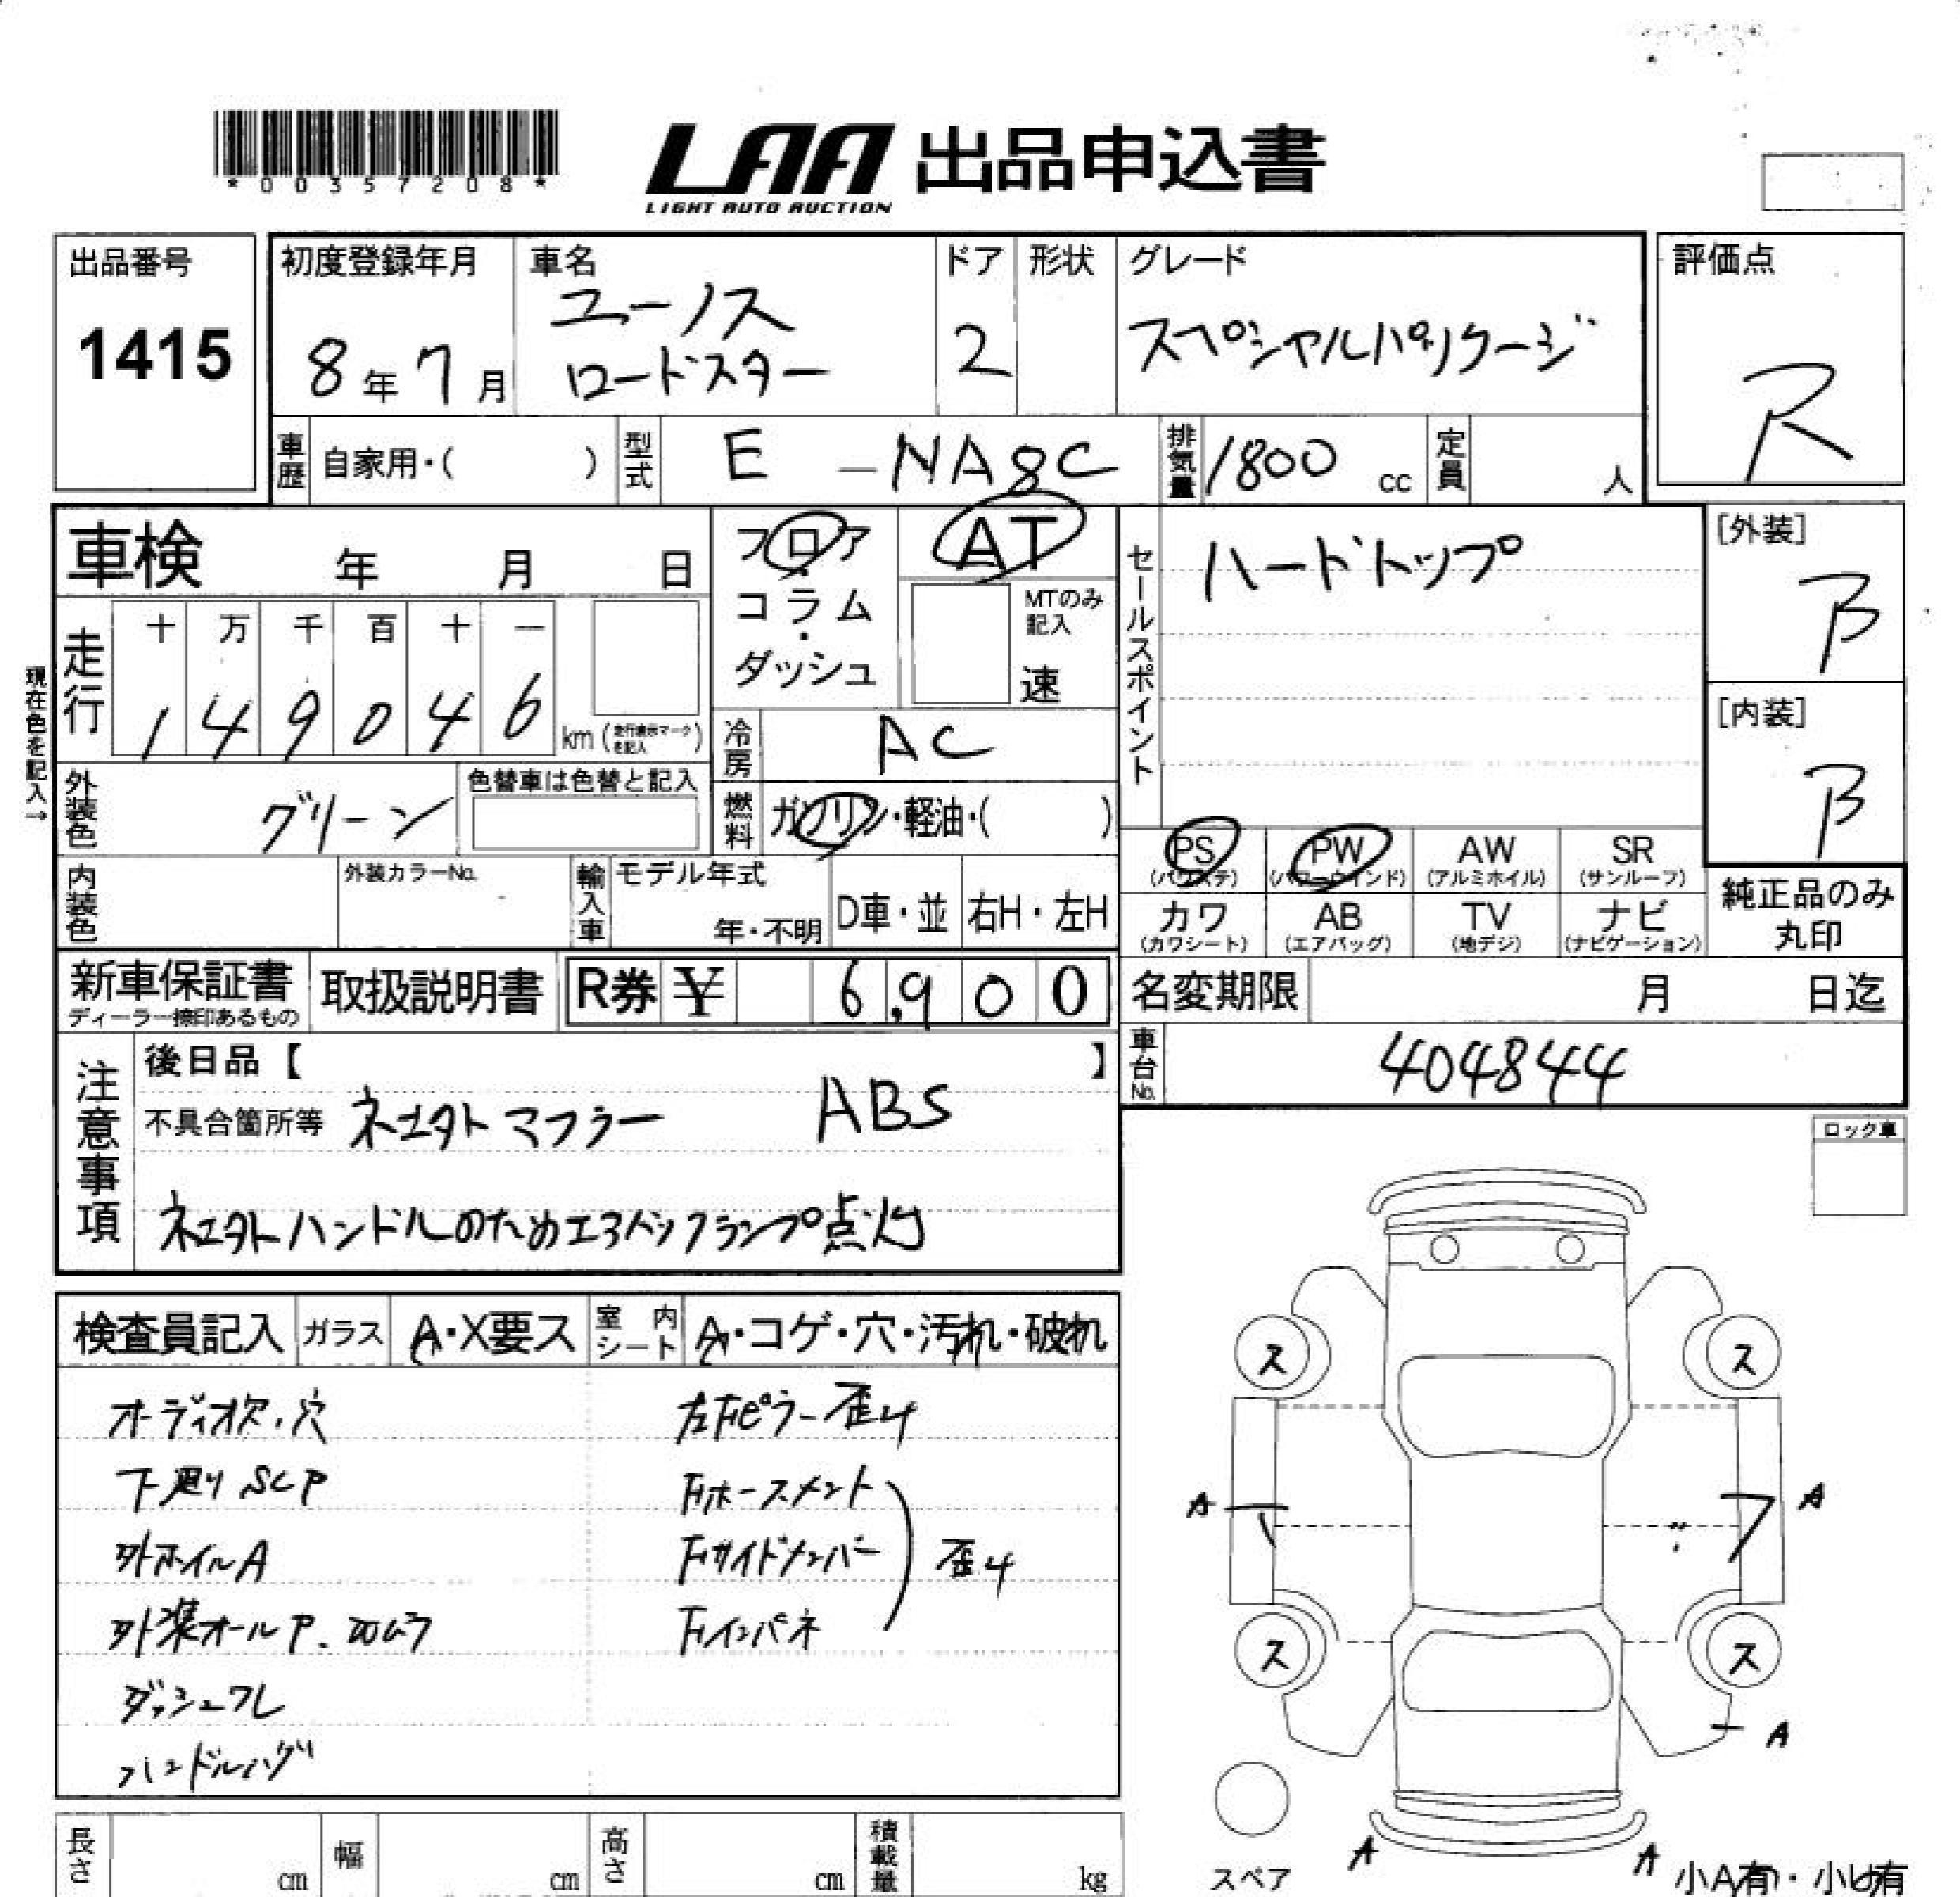 *00357208*
LAA 出品申込書
LIGHT AUTO AUCTION
出品番号
1415
初度登録年月
8年7月
車名
ユーノス
ロードスター
ドア
2
形状
グレード
スペシャルパッケージ
評価点
R
車歴
自家用・( )
型式
E - NA8C
排気量
1800 cc
定員
人
車検 年 月 日
フロア・コラム・ダッシュ
AT
MTのみ記入
速
セールスポイント
ハードトップ
[外装]
B
[内装]
B
現在色を記入→
走行
十 万 千 百 十 一
1 4 9 0 4 6 km
冷房
AC
外装色
グリーン
色替車は色替と記入
燃料
ガソリン・軽油・( )
PS (パワステ)
PW (パワーウインド)
AW (アルミホイル)
SR (サンルーフ)
カワ (カワシート)
AB (エアバッグ)
TV (地デジ)
ナビ (ナビゲーション)
純正品のみ丸印
内装色
外装カラーNo.
輸入車
モデル年式
年・不明
D車・並
右H・左H
新車保証書
ディーラー捺印あるもの
取扱説明書
R券 ¥ 6,900
名変期限 月 日迄
車台No.
404844
注意事項
後日品【 】
不具合箇所等 ネエタト マフラー ABS
ネエタトハンドルのためエアバックランプ点灯
ロック車
検査員記入
ガラス
A・X要ス
室内シート
A・コゲ・穴・汚れ・破れ
オーディオ欠、穴
下廻りSCP
外ホイルA
外装オールP.
ダッシュフレ
左Fピラー歪み
Fホースメント
Fサイドメンバー
Fインパネ
歪み
ス
ス
A
A
ス
ス
A
A
A
スペア
小A有・小U有
長さ cm
幅 cm
高さ cm
積載量 kg